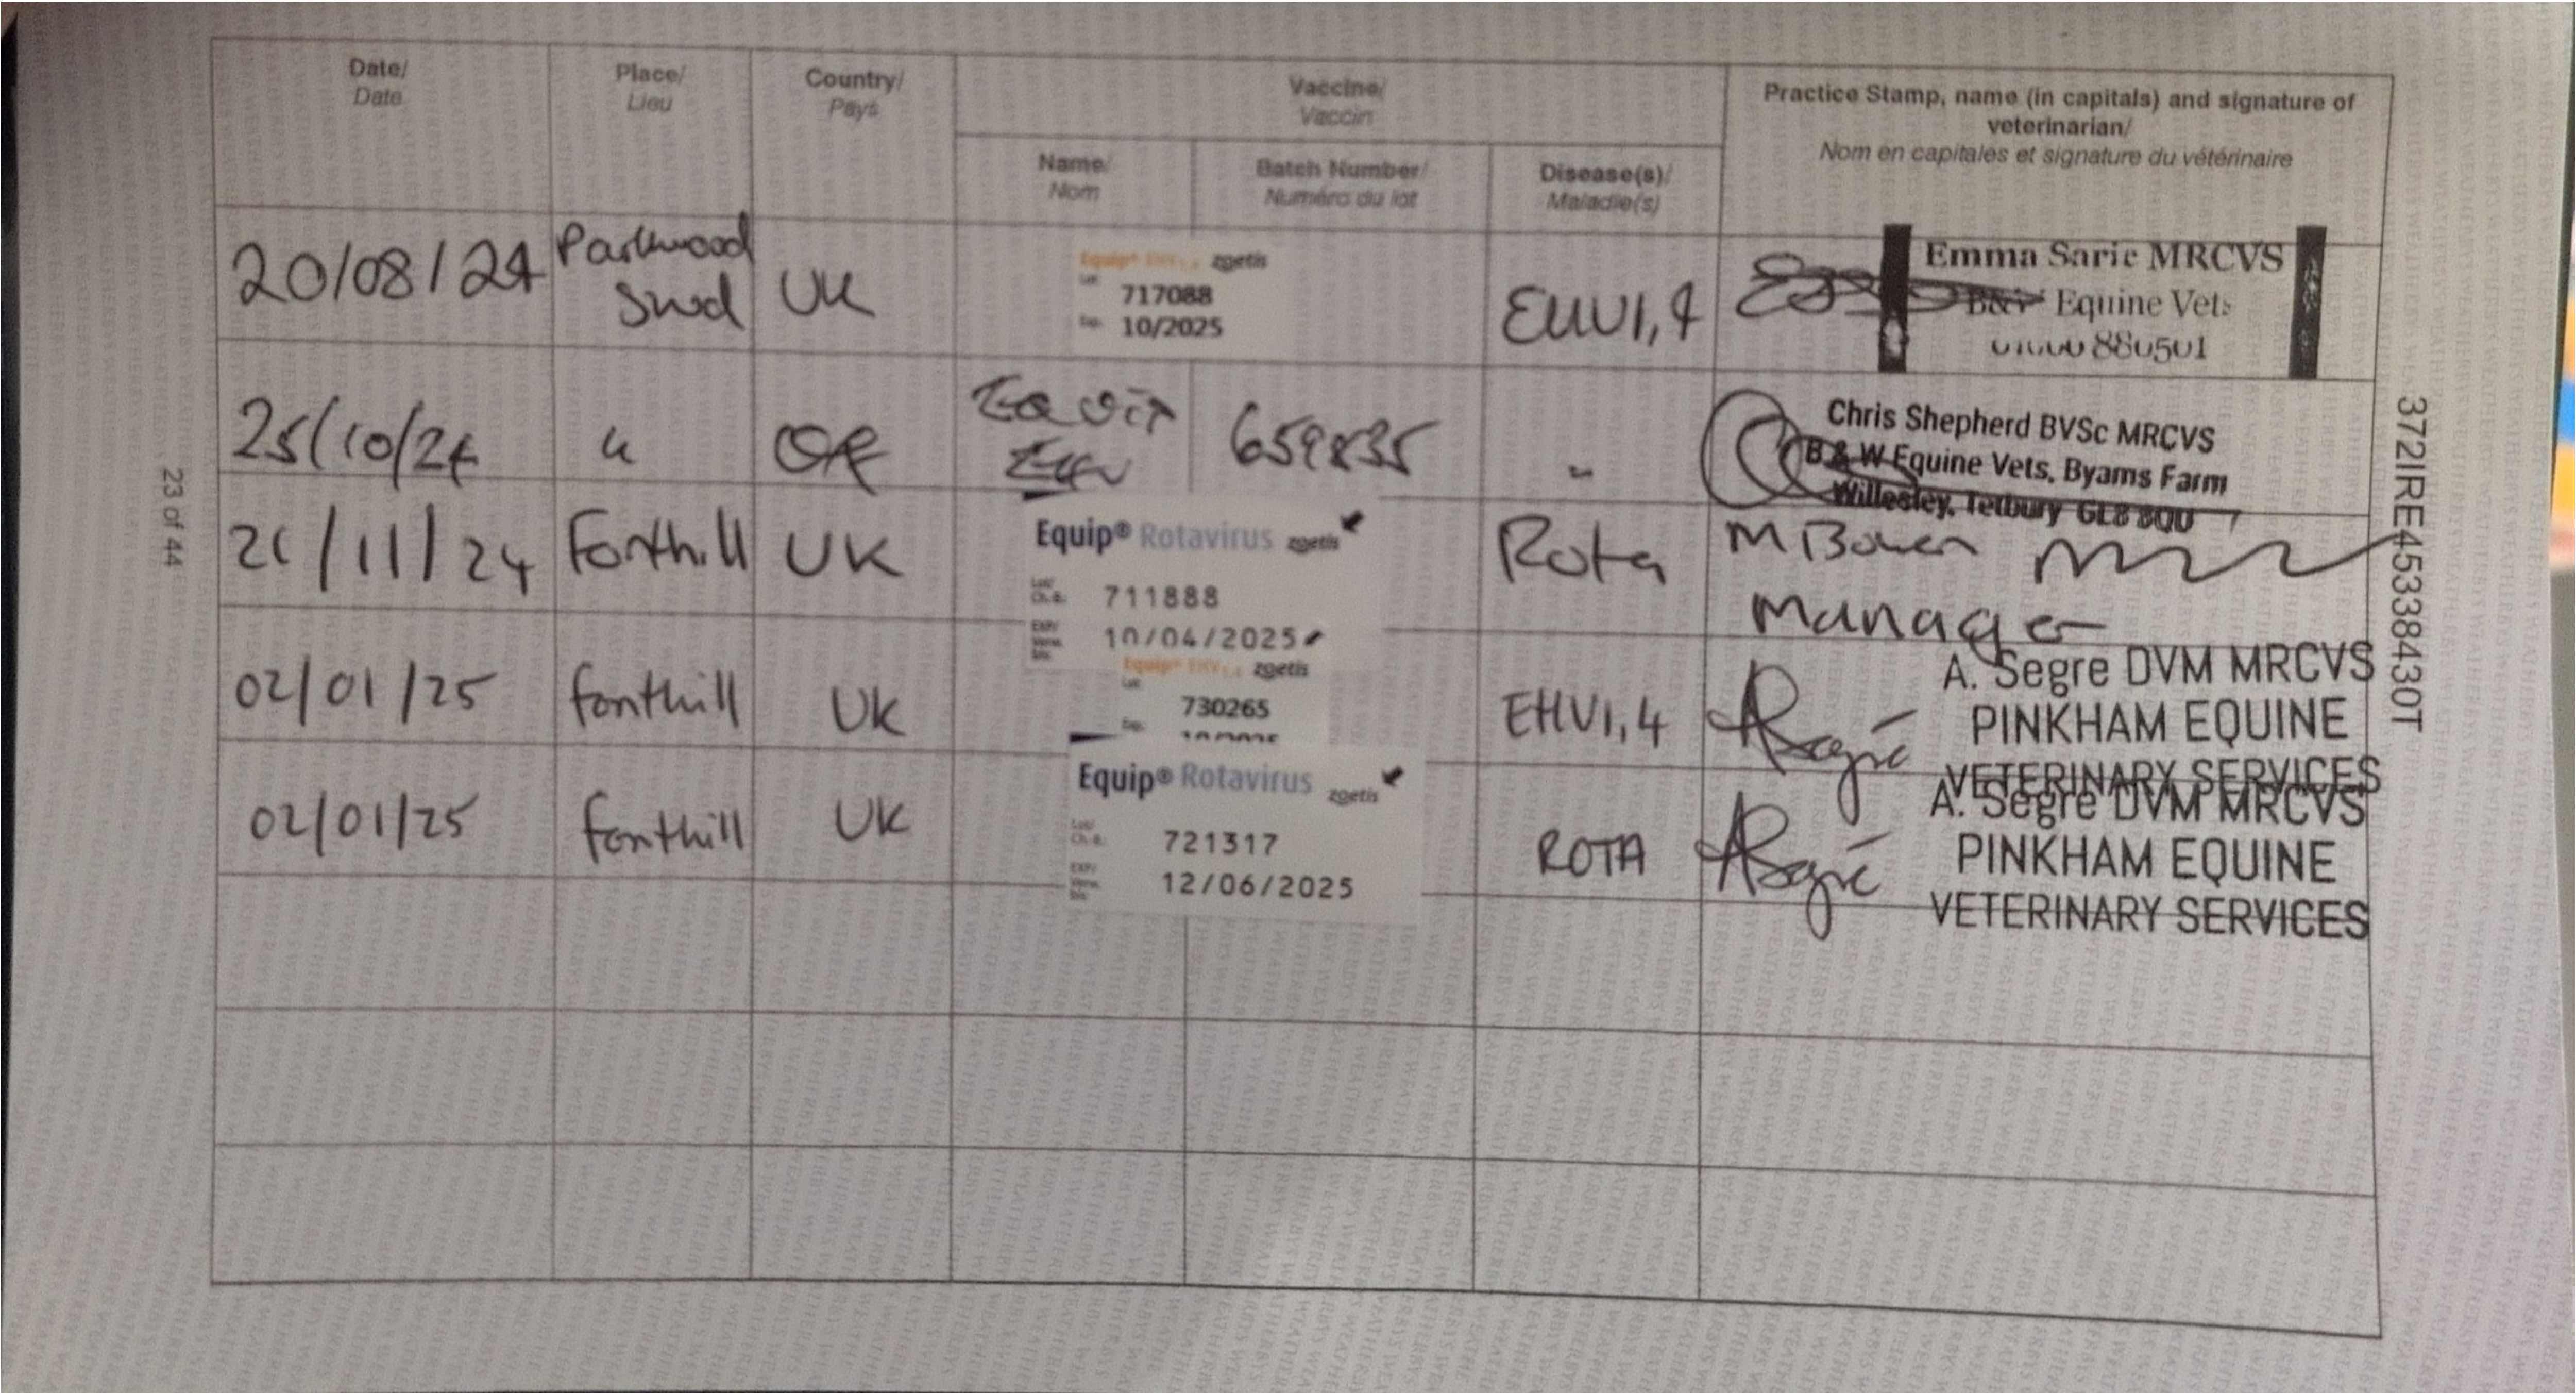 Date/
Date
Place/
Lieu
Country/
Pays
Vaccine/
Vaccin
Practice Stamp, name (in capitals) and signature of
veterinarian/
Nom en capitales et signature du vétérinaire
Name/
Nom
Batch Number/
Numéro du lot
Disease(s)/
Maladie(s)
20/08/24
Parkwood
Stud
UK
Equip® EHV zoetis
Lot
717088
Exp. 10/2025
EHV1,4
Emma Sarie MRCVS
B&W Equine Vets
880501
25/10/24
"
659835
"
Chris Shepherd BVSc MRCVS
B & W Equine Vets, Byams Farm
Willesley, Tetbury GL8 8QU
21/11/24
Fonthill
UK
Equip® Rotavirus zoetis
711888
10/04/2025
Rota
M Bowen
Manager
02/01/25
Fonthill
UK
Equip® EHV zoetis
730265
EHV1,4
A. Segre DVM MRCVS
PINKHAM EQUINE
VETERINARY SERVICES
02/01/25
Fonthill
UK
Equip® Rotavirus
zoetis
721317
12/06/2025
ROTA
A. Segre DVM MRCVS
PINKHAM EQUINE
VETERINARY SERVICES
23 of 44
372IRE45338430T